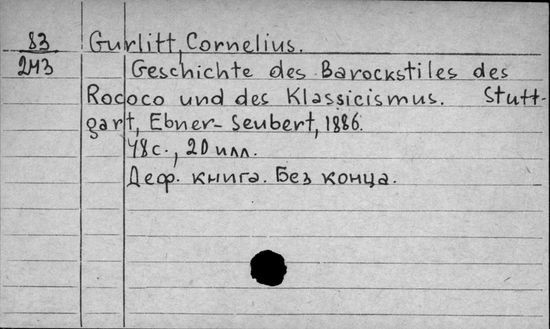 83 Gurlitt, Cornelius.
2М3 Geschichte des Barockstiles des
Rococo und des Klassicismus. Stutt-
gart, Ebner-Seubert, 1886.
48с., 20 илл.
Деф. книга. Без конца.